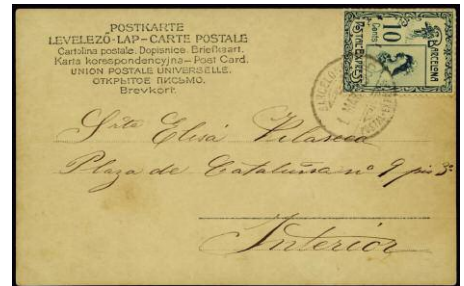 POSTKARTE
LEVELEZŐ-LAP-CARTE POSTALE
Cartolina postale. Dopisnice. Briefkaart.
Karta korespondencyjna-Post Card.
UNION POSTALE UNIVERSELLE.
ОТКРЫТОЕ ПИСЬМО.
Brevkort.
BARCELONA
10
Cents
POSTAL EXPRES
Srta Elisa Vilaseca
Plaza de Cataluña nº 9 pis 3º
Interior